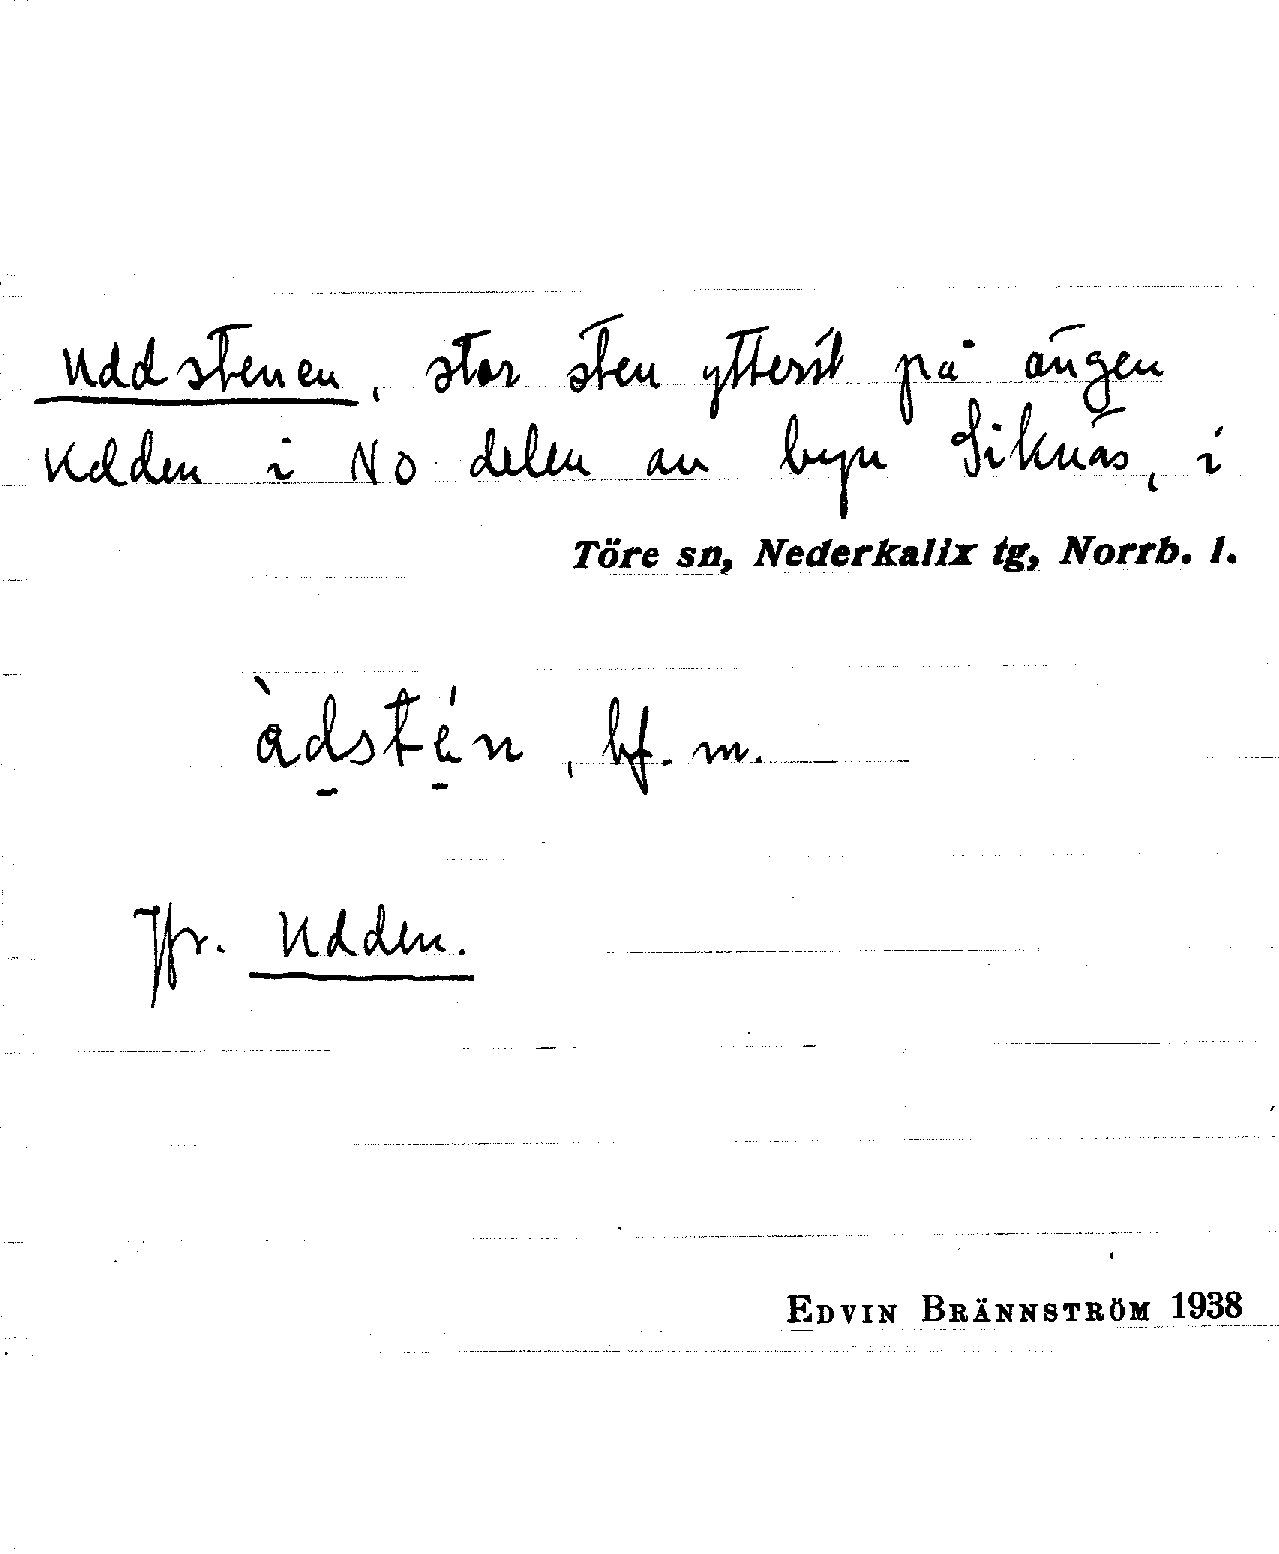 Uddstenen, stor sten ytterst på ängen
Udden i NO delen av byn Siknäs, i
Töre sn, Nederkalix tg, Norrb. l.
àḏsté̱n, bf. m.
Jfr. Udden.
EDVIN BRÄNNSTRÖM 1938